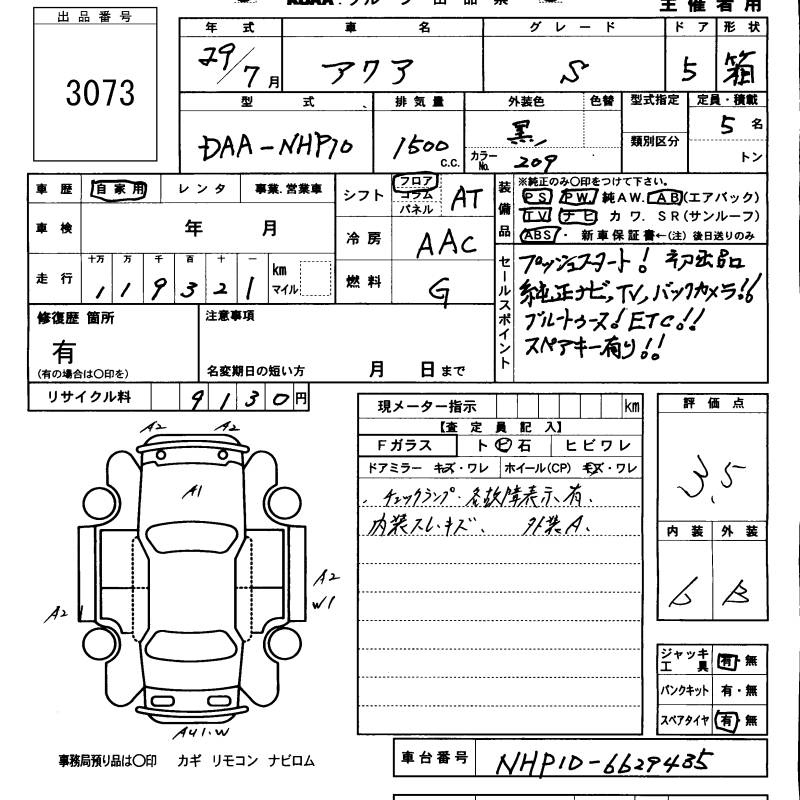 主催者用
出品番号
3073
年式 車名 グレード ドア 形状
29/7月 アクア S 5 箱
型式 排気量 外装色 色替 型式指定 定員・積載
DAA-NHP10 1500 c.c. 黒 カラーNo. 209 類別区分 5名 トン
車歴 自家用 レンタ 事業.営業車
シフト フロア コラム パネル AT
装備品 ※純正のみ〇印をつけて下さい。
PS PW 純AW. AB(エアバック)
TV ナビ カワ. SR(サンルーフ)
ABS・ 新車保証書←(注)後日送りのみ
車検 年 月
冷房 AAC
走行 十万 万 千 百 十 一 km マイル
119321
燃料 G
セールスポイント
プッシュスタート! 初出品
純正ナビ,TV,バックカメラ!!
ブルートゥース!ETC!!
スペアキー有り!!
修復歴 箇所
有
(有の場合は〇印を)
注意事項
名変期日の短い方 月 日まで
リサイクル料 9130円
現メーター指示 km
【査定員記入】
Fガラス ト ビ 石 ヒビワレ
ドアミラー キズ・ワレ ホイール(CP) キズ・ワレ
チェックランプ・各故障表示、有、
内装スレ、キズ、 外装A、
評価点
3.5
内装 外装
b B
A2 A2
A1
A2 A2
W1
A4 1.W
ジャッキ工具 有・無
パンクキット 有・無
スペアタイヤ 有・無
事務局預り品は〇印 カギ リモコン ナビロム
車台番号 NHP10-6629435